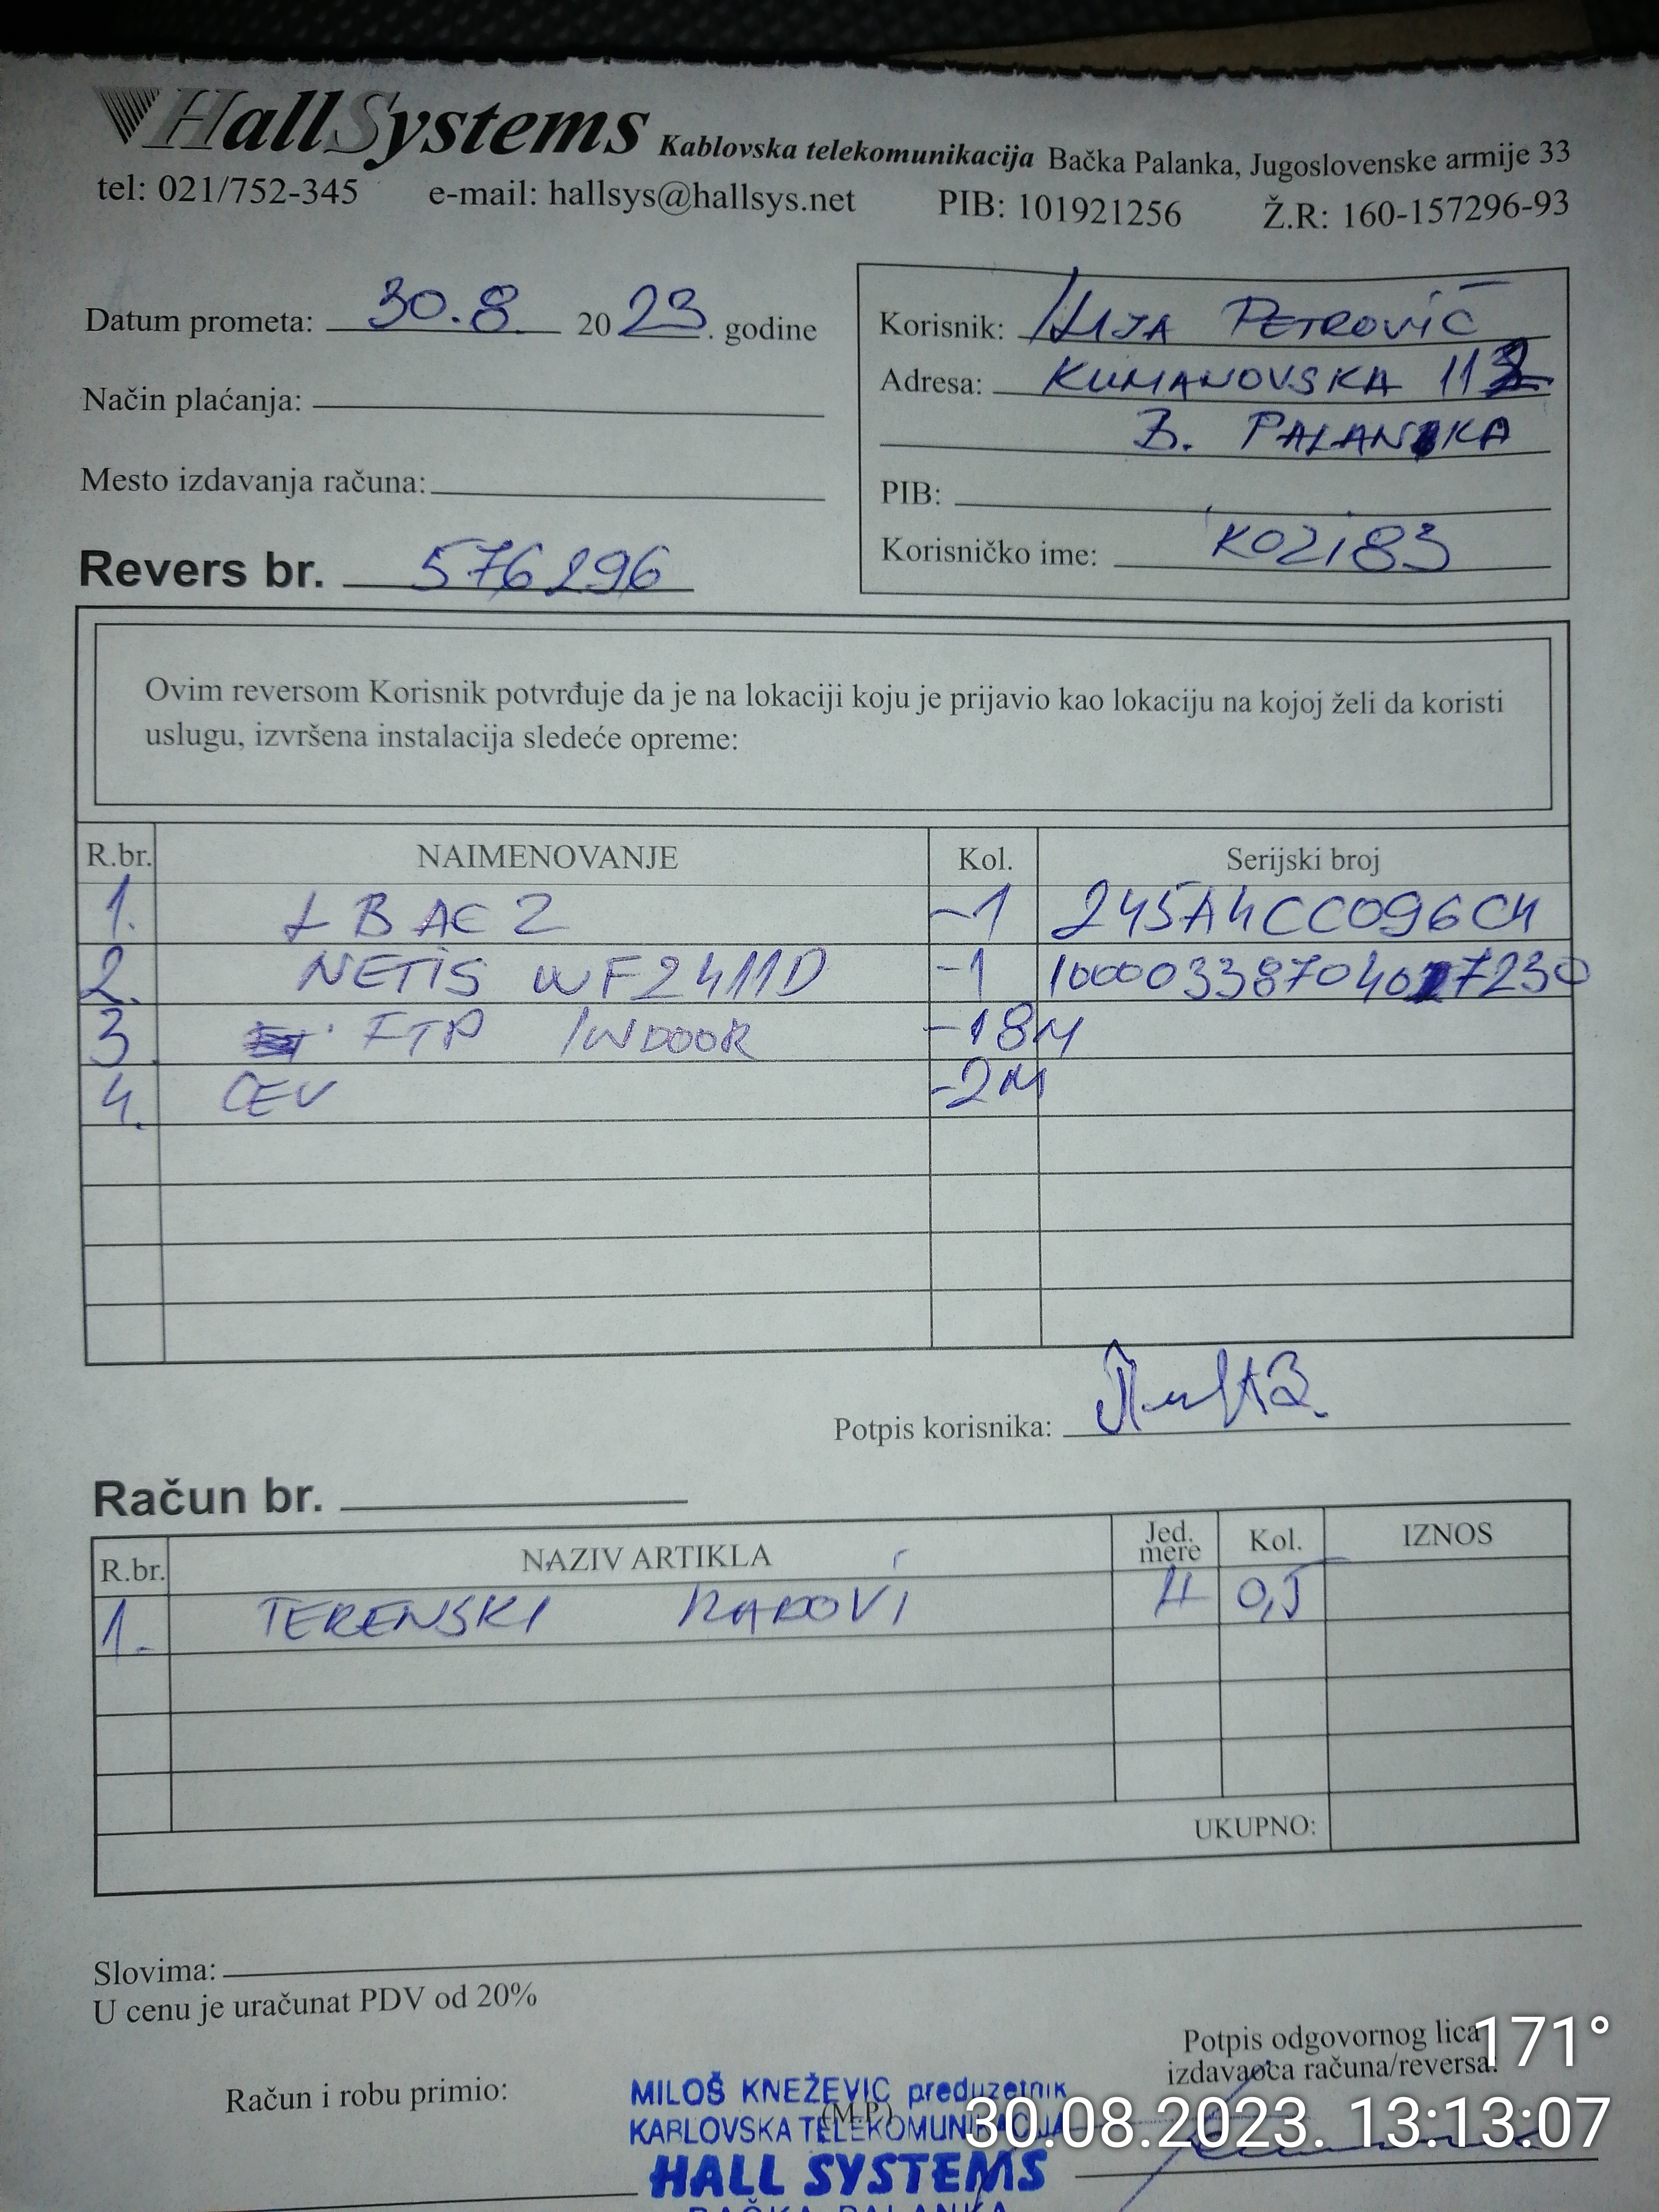 HallSystems Kablovska telekomunikacija Bačka Palanka, Jugoslovenske armije 33
tel: 021/752-345 e-mail: hallsys@hallsys.net PIB: 101921256 Ž.R: 160-157296-93
Datum prometa: 30.8. 2023. godine
Način plaćanja:
Mesto izdavanja računa:
Revers br. 576296
Korisnik: ILIJA PETROVIĆ
Adresa: KUMANOVSKA 112
B. PALANKA
PIB:
Korisničko ime: KOZI83
Ovim reversom Korisnik potvrđuje da je na lokaciji koju je prijavio kao lokaciju na kojoj želi da koristi
uslugu, izvršena instalacija sledeće opreme:
R.br. NAIMENOVANJE Kol. Serijski broj
1. LBAC2 -1 245A4CC096C4
2. NETIS WF2411D -1 10000338704017230
3. FTP INDOOR -18M
4. CEV -2M
Potpis korisnika:
Račun br.
R.br. NAZIV ARTIKLA Jed. mere Kol. IZNOS
1. TERENSKI RADOVI H 0,5
UKUPNO:
Slovima:
U cenu je uračunat PDV od 20%
Račun i robu primio:
(M.P.)
Potpis odgovornog lica
izdavaoca računa/reversa:
MILOŠ KNEŽEVIĆ preduzetnik
KABLOVSKA TELEKOMUNIKACIJA
HALL SYSTEMS
BAČKA PALANKA
171°
30.08.2023. 13:13:07